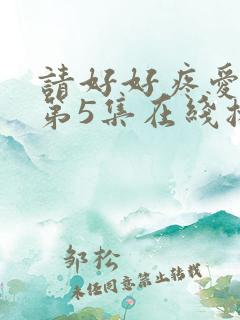 請好好疼愛
第5集在綫
邹松
未经同意禁止转载